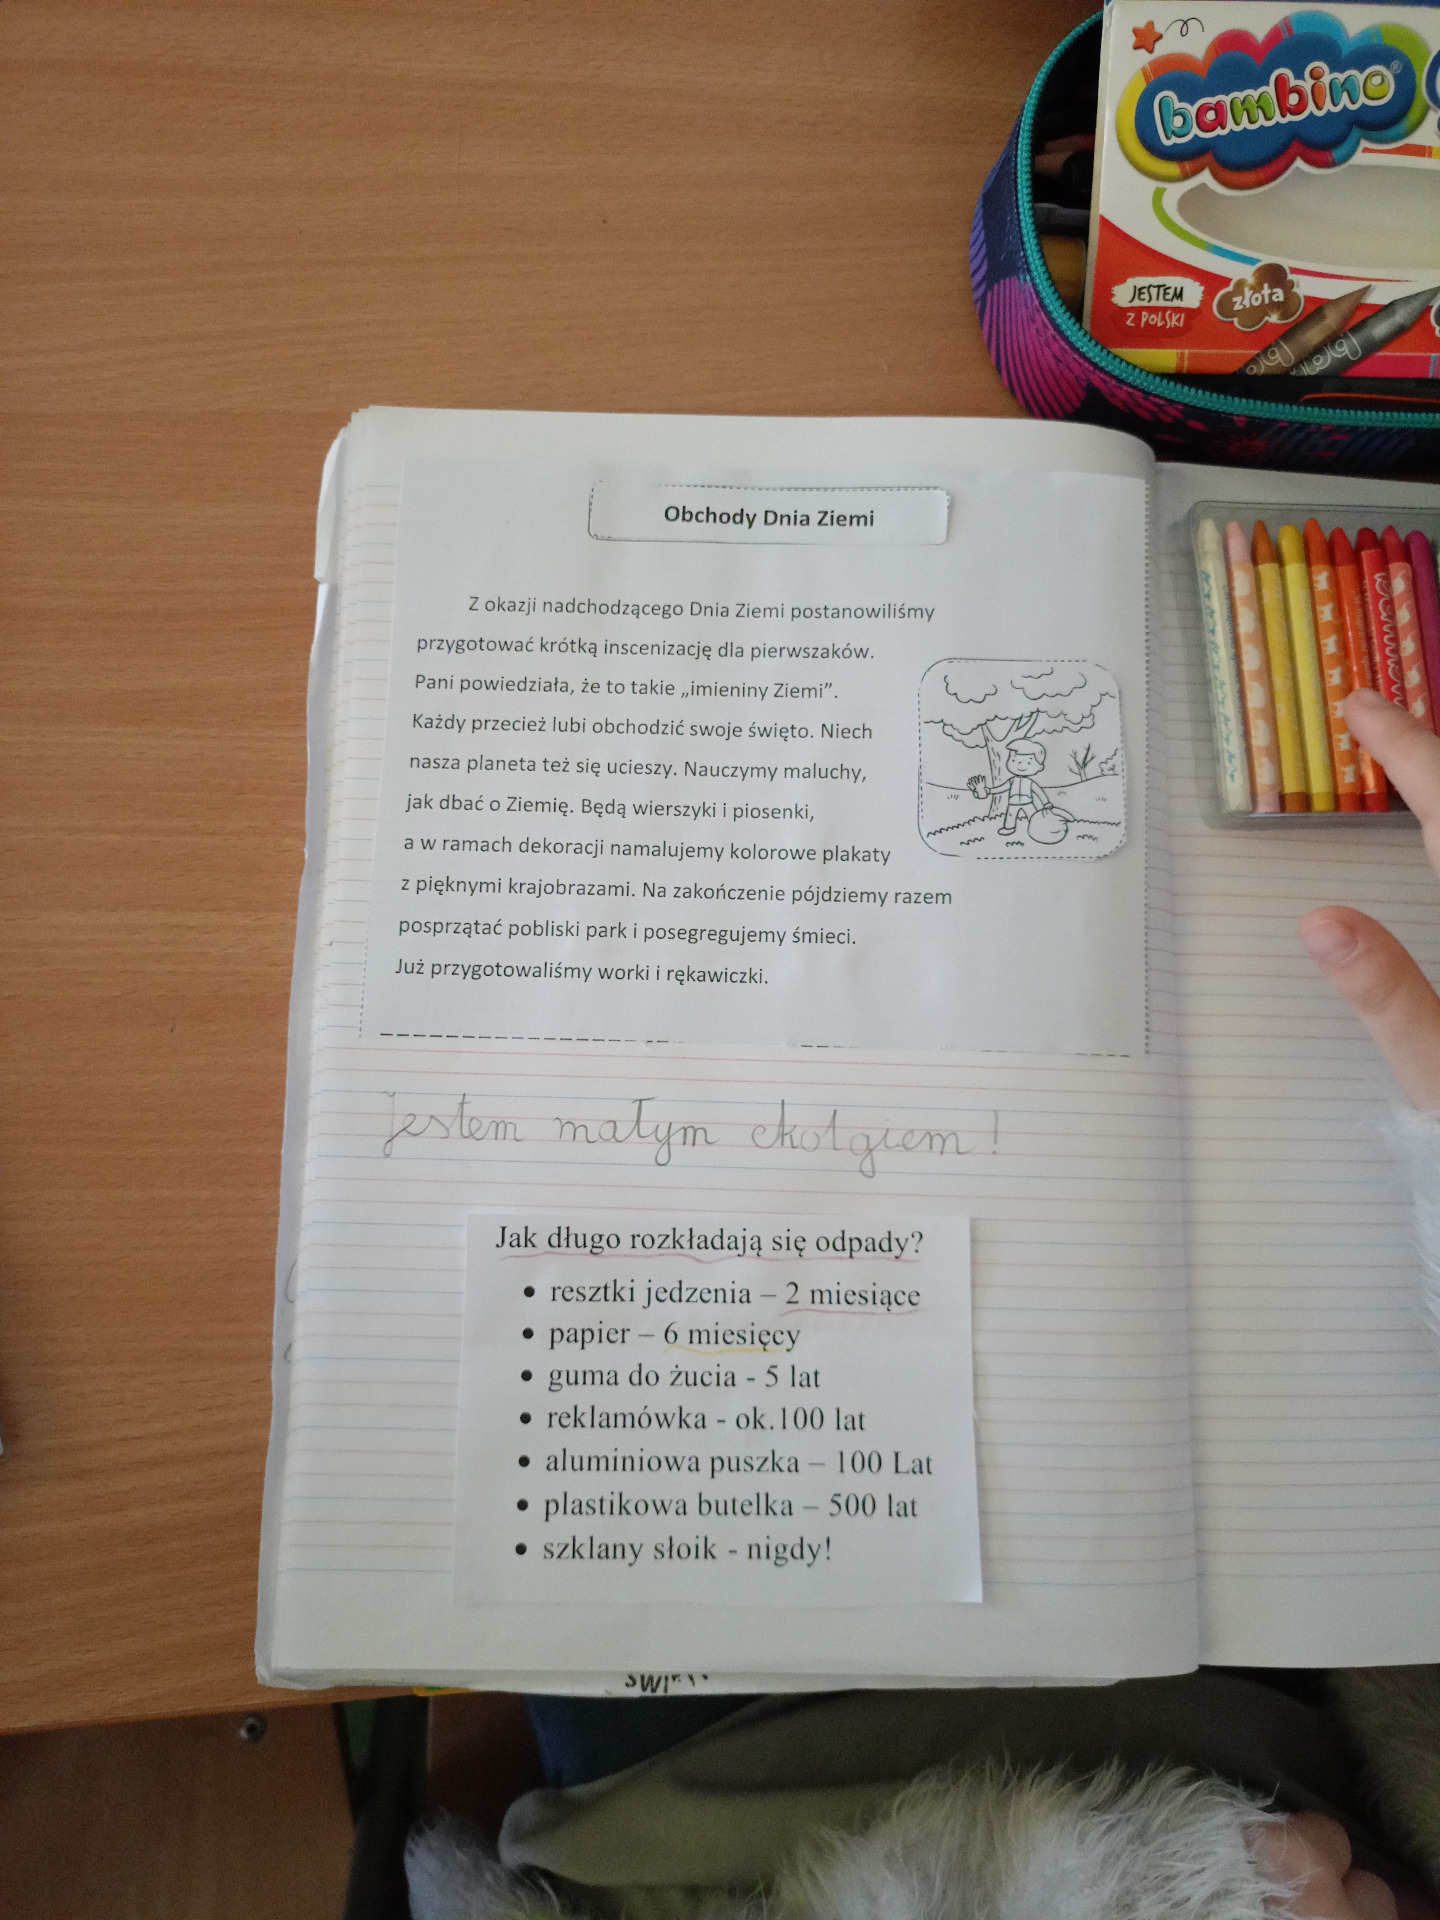 bambino
JESTEM
Z POLSKI
złota
Obchody Dnia Ziemi
Z okazji nadchodzącego Dnia Ziemi postanowiliśmy
przygotować krótką inscenizację dla pierwszaków.
Pani powiedziała, że to takie „imieniny Ziemi”.
Każdy przecież lubi obchodzić swoje święto. Niech
nasza planeta też się ucieszy. Nauczymy maluchy,
jak dbać o Ziemię. Będą wierszyki i piosenki,
a w ramach dekoracji namalujemy kolorowe plakaty
z pięknymi krajobrazami. Na zakończenie pójdziemy razem
posprzątać pobliski park i posegregujemy śmieci.
Już przygotowaliśmy worki i rękawiczki.
Jestem małym ekolgiem!
Jak długo rozkładają się odpady?
• resztki jedzenia – 2 miesiące
• papier – 6 miesięcy
• guma do żucia - 5 lat
• reklamówka - ok.100 lat
• aluminiowa puszka – 100 Lat
• plastikowa butelka – 500 lat
• szklany słoik - nigdy!